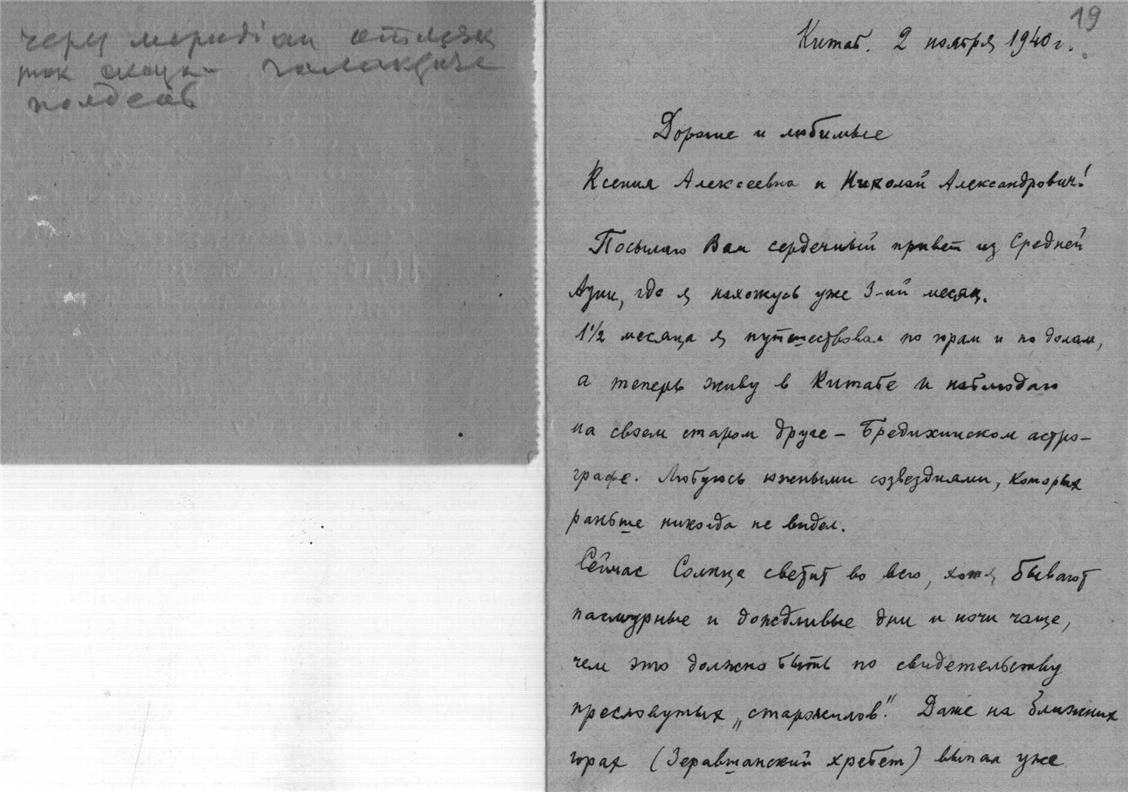 19
Китаб. 2 ноября 1940 г.
Дорогие и любимые
Ксения Алексеевна и Николай Александрович!
Посылаю Вам сердечный привет из Средней
Азии, где я нахожусь уже 3-ий месяц.
1 1/2 месяца я путешествовал по горам и по долам,
а теперь живу в Китабе и наблюдаю
на своем старом друге – Бредихинском астро-
графе. Любуюсь южными созвездиями, которых
раньше никогда не видел.
Сейчас Солнце светит во всю, хотя бывают
пасмурные и дождливые дни и ночи чаще,
чем это должно быть по свидетельству
пресловутых „старожилов". Даже на ближних
горах (Зеравшанский хребет) выпал уже
меридіан